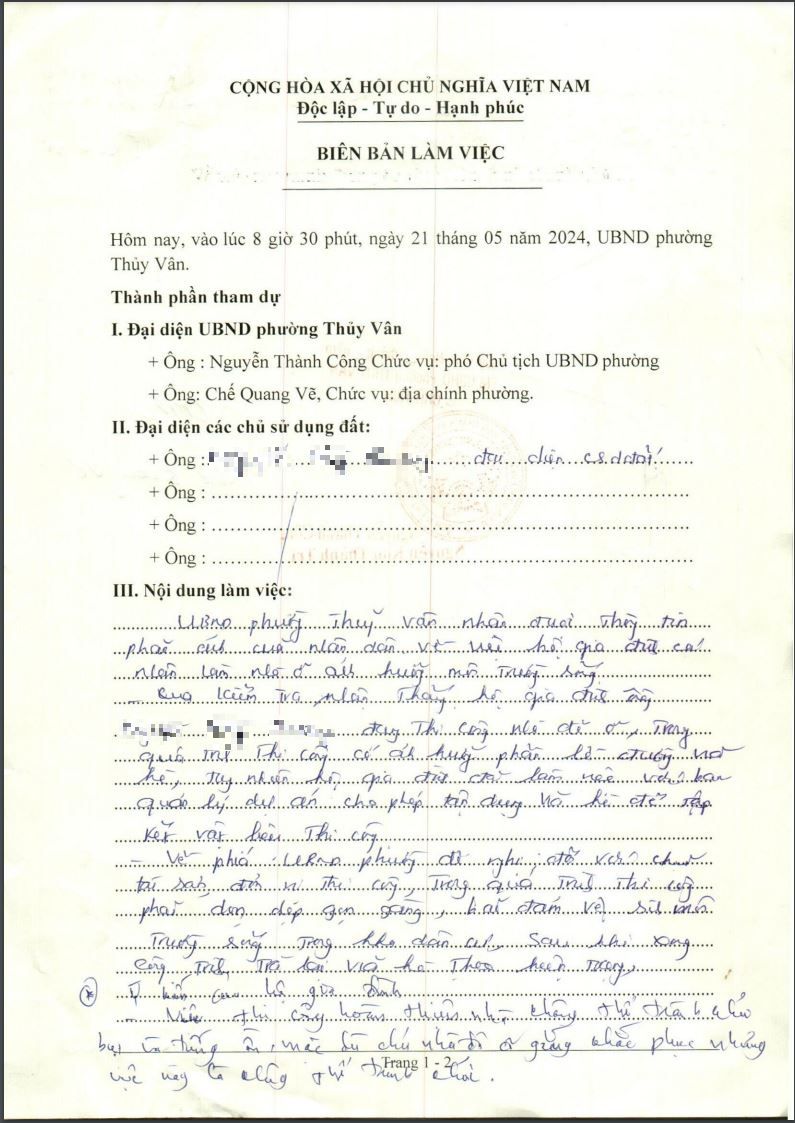 CỘNG HÒA XÃ HỘI CHỦ NGHĨA VIỆT NAM
Độc lập - Tự do - Hạnh phúc
BIÊN BẢN LÀM VIỆC
Hôm nay, vào lúc 8 giờ 30 phút, ngày 21 tháng 05 năm 2024, UBND phường
Thủy Vân.
Thành phần tham dự
I. Đại diện UBND phường Thủy Vân
+ Ông : Nguyễn Thành Công Chức vụ: phó Chủ tịch UBND phường
+ Ông: Chế Quang Vẽ, Chức vụ: địa chính phường.
II. Đại diện các chủ sử dụng đất:
+ Ông : đại diện
+ Ông :
+ Ông :
+ Ông :
III. Nội dung làm việc:
UBND phường Thuỷ Vân nhận được thông tin
phản ánh của nhân dân về việc hộ gia đình cá
nhân làm nhà ở ảnh hưởng môi trường sống
- Qua kiểm tra, nhận thấy hộ gia đình ông
đang thi công nhà để ở, trong
quá trình thi công có ảnh hưởng phần lề đường vỉa
hè, tuy nhiên hộ gia đình đã làm việc với ban
quản lý dự án cho phép tận dụng vỉa hè để tập
kết vật liệu thi công
- Về phía UBND phường đề nghị, đối với chủ
tài sản, đơn vị thi công, trong quá trình thi công
phải dọn dẹp gọn gàng, bảo đảm vệ sinh môi
trường sống trong khu dân cư. Sau khi xong
công trình trả lại vỉa hè theo hiện trạng.
* Ý kiến của hộ gia đình
- Việc thi công hoàn thiện nhà không thể tránh khỏi
bụi và tiếng ồn, mặc dù chủ nhà đã cố gắng khắc phục nhưng
việc này là không thể tránh khỏi.
Trang 1 - 2